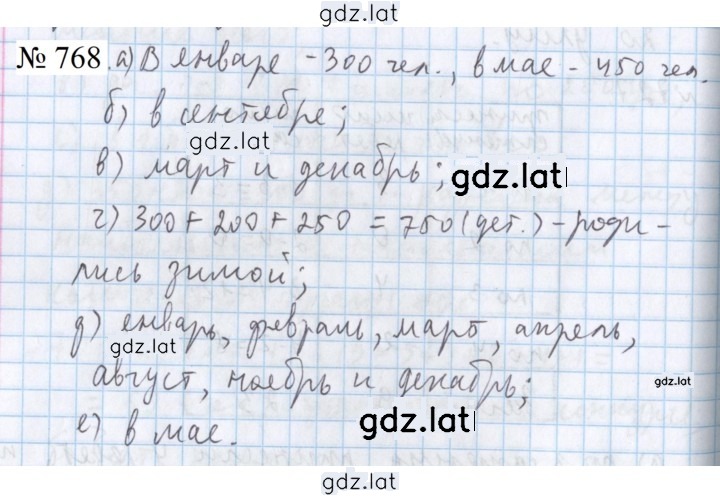 gdz.lat
№ 768 а) В январе - 300 чел., в мае - 450 чел.
б) в сентябре;
gdz.lat
в) март и декабрь;
gdz.lat
г) 300 + 200 + 250 = 750 (дет.) - роди-
лись зимой;
д) январь, февраль, март, апрель,
gdz.lat
август, ноябрь и декабрь;
gdz.lat
е) в мае.
gdz.lat
gdz.lat